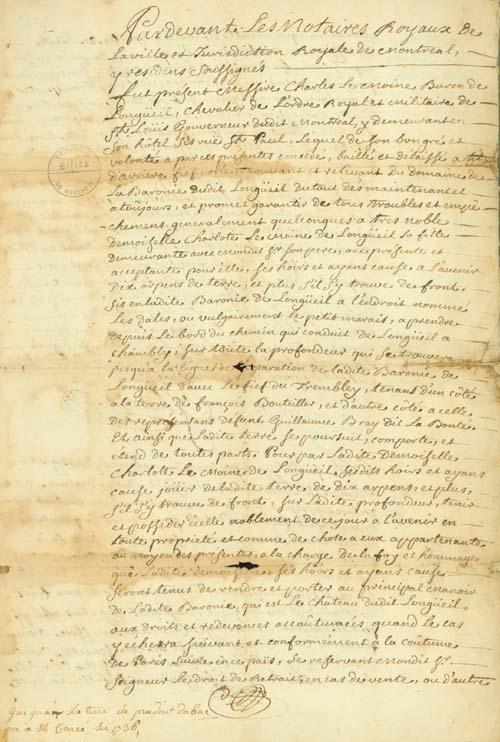 Pardevant Les Notaires Royaux de
La ville et Jurisdiction Royale de montreal,
y residens soussignés
fut présent Messire Charles Le moine Baron de
Longüeil, Chevalier de L'ordre Royal et militaire de
St. Loüis Gouverneur dudit montreal, y demeurant en
Son hôtel Sis ruë St. Paul, Lequel de son bon gré et
volonté a par ces présentes concédé, baillé et délaissé a
d'arriere fief mouvant et relevant du domaine de
La Baronie dudit Longüeil du tout des maintenant et
a toûjours, et promet garantir de tous troubles et empê-
chemens generalement quelconques a tres noble
demoiselle Charlote Le moine de Longüeil sa fille
demeurante avec mondit Sr. son pere, a ce présente et
acceptante pour elle, ses hoirs et ayans cause a l'avenir
dix arpens de terre, et plus s'il s'y trouve de front,
sis en ladite Baronie de Longüeil a l'endroit nommé
Les dales, ou vulgairement le petit marais, a prendre
depuis Le bord du chemin qui conduit de Longüeil a
chambly, sur toute la profondeur qui se trouvera
jusqu'a la ligne de separation de ladite Baronie de
Longüeil d'avec Le fief du Trembley, tenant d'un côté
a la terre de françois Bouteiller, et d'autre côté a celle
des représentans defunt Guillaume Bray dit La Bonté
Et, ainsi que Ladite terre se poursuit, comporte, et
etend de toutes parts Pour par Ladite Demoiselle
Charlote Le Moine de Longüeil, sesdits hoirs et ayans
cause joüir de ladite terre de dix arpens, et plus,
s'il s'y trouve de front, sur Ladite profondeur, tenir
et posséder icelle noblement de ce jour a L'avenir en
toute propriété et comme de chose a eux appartenante
au moyen des présentes, a la charge de la foy et hommage
que Ladite demoiselle ses hoirs et ayans cause
seront tenus de rendre et porter au principal manoir
de Ladite Baronie, qui est Le Chateau dudit Longüeil,
aux droits et redevances accoûtumées quand le cas
y écherra suivant et conformément à la coûtume
de Paris suivie en ce païs, se reservant Mondit Sr.
Seigneur Le droit de Retrait, en cas de vente, ou d'autre
La terre de prudent dubuc
de 1736